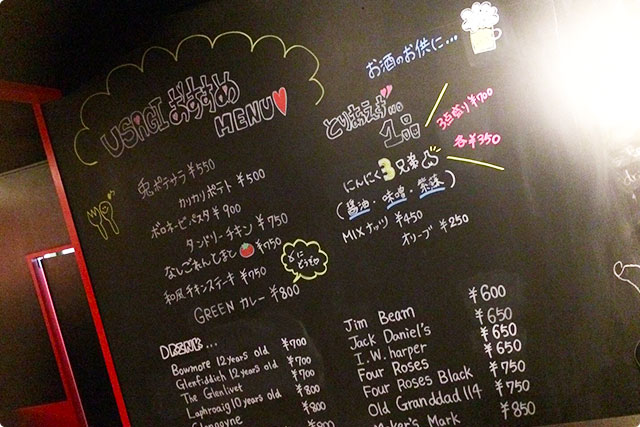 USAGI おすすめ
MENU
兎ポテサラ ¥550
カリカリポテト ¥500
ボロネーゼパスタ ¥900
タンドリーチキン ¥750
¥750
和風チキンステーキ ¥750
GREEN カレー ¥800
DRINK...
Bowmore 12years old ¥700
Glenfiddich 12 years old ¥700
The Glenlivet ¥700
Laphroaig 10 years old ¥800
Glengoyne ¥800
お酒のお供に...
とりあえず...
1品
3点盛り ¥700
各 ¥350
にんにく3兄弟
(醤油・味噌・紫蘇)
MIXナッツ ¥450
オリーブ ¥250
Jim Beam ¥600
Jack Daniel's ¥650
I.W.harper ¥650
Four Roses ¥650
Four Roses Black ¥750
Old Granddad 114 ¥750
Maker's Mark ¥850